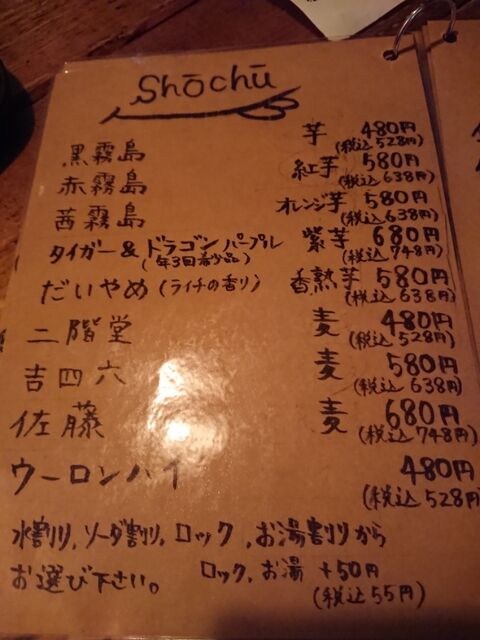 Shōchū
黒霧島 芋 480円
(税込528円)
赤霧島 紅芋 580円
(税込638円)
茜霧島 オレンジ芋 580円
(税込638円)
タイガー&ドラゴンパープル 紫芋 680円
(年3回希少品) (税込748円)
だいやめ(ライチの香り) 香熟芋 580円
(税込638円)
二階堂 麦 480円
(税込528円)
吉四六 麦 580円
(税込638円)
佐藤 麦 680円
(税込748円)
ウーロンハイ 480円
(税込528円)
水割り,ソーダ割り,ロック,お湯割りから
お選び下さい。 ロック,お湯 +50円
(税込55円)